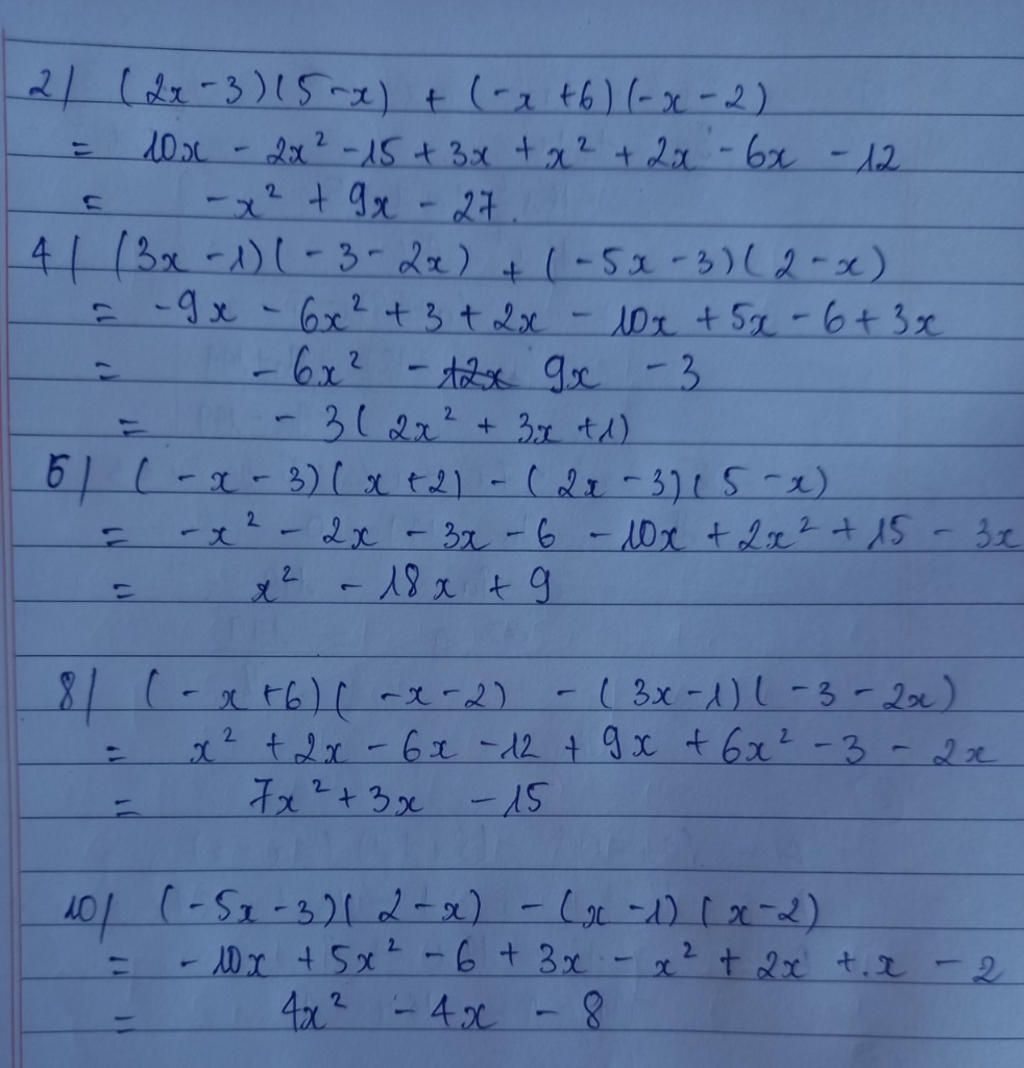 2/ (2x - 3)(5 - x) + (-x + 6)(-x - 2)
= 10x - 2x² - 15 + 3x + x² + 2x - 6x - 12
= -x² + 9x - 27.
4/ (3x - 1)(-3 - 2x) + (-5x - 3)(2 - x)
= -9x - 6x² + 3 + 2x - 10x + 5x - 6 + 3x
= -6x² - 12x 9x - 3
= -3(2x² + 3x + 1)
5/ (-x - 3)(x + 2) - (2x - 3)(5 - x)
= -x² - 2x - 3x - 6 - 10x + 2x² + 15 - 3x
= x² - 18x + 9
8/ (-x + 6)(-x - 2) - (3x - 1)(-3 - 2x)
= x² + 2x - 6x - 12 + 9x + 6x² - 3 - 2x
= 7x² + 3x - 15
10/ (-5x - 3)(2 - x) - (x - 1)(x - 2)
= -10x + 5x² - 6 + 3x - x² + 2x + x - 2
= 4x² - 4x - 8